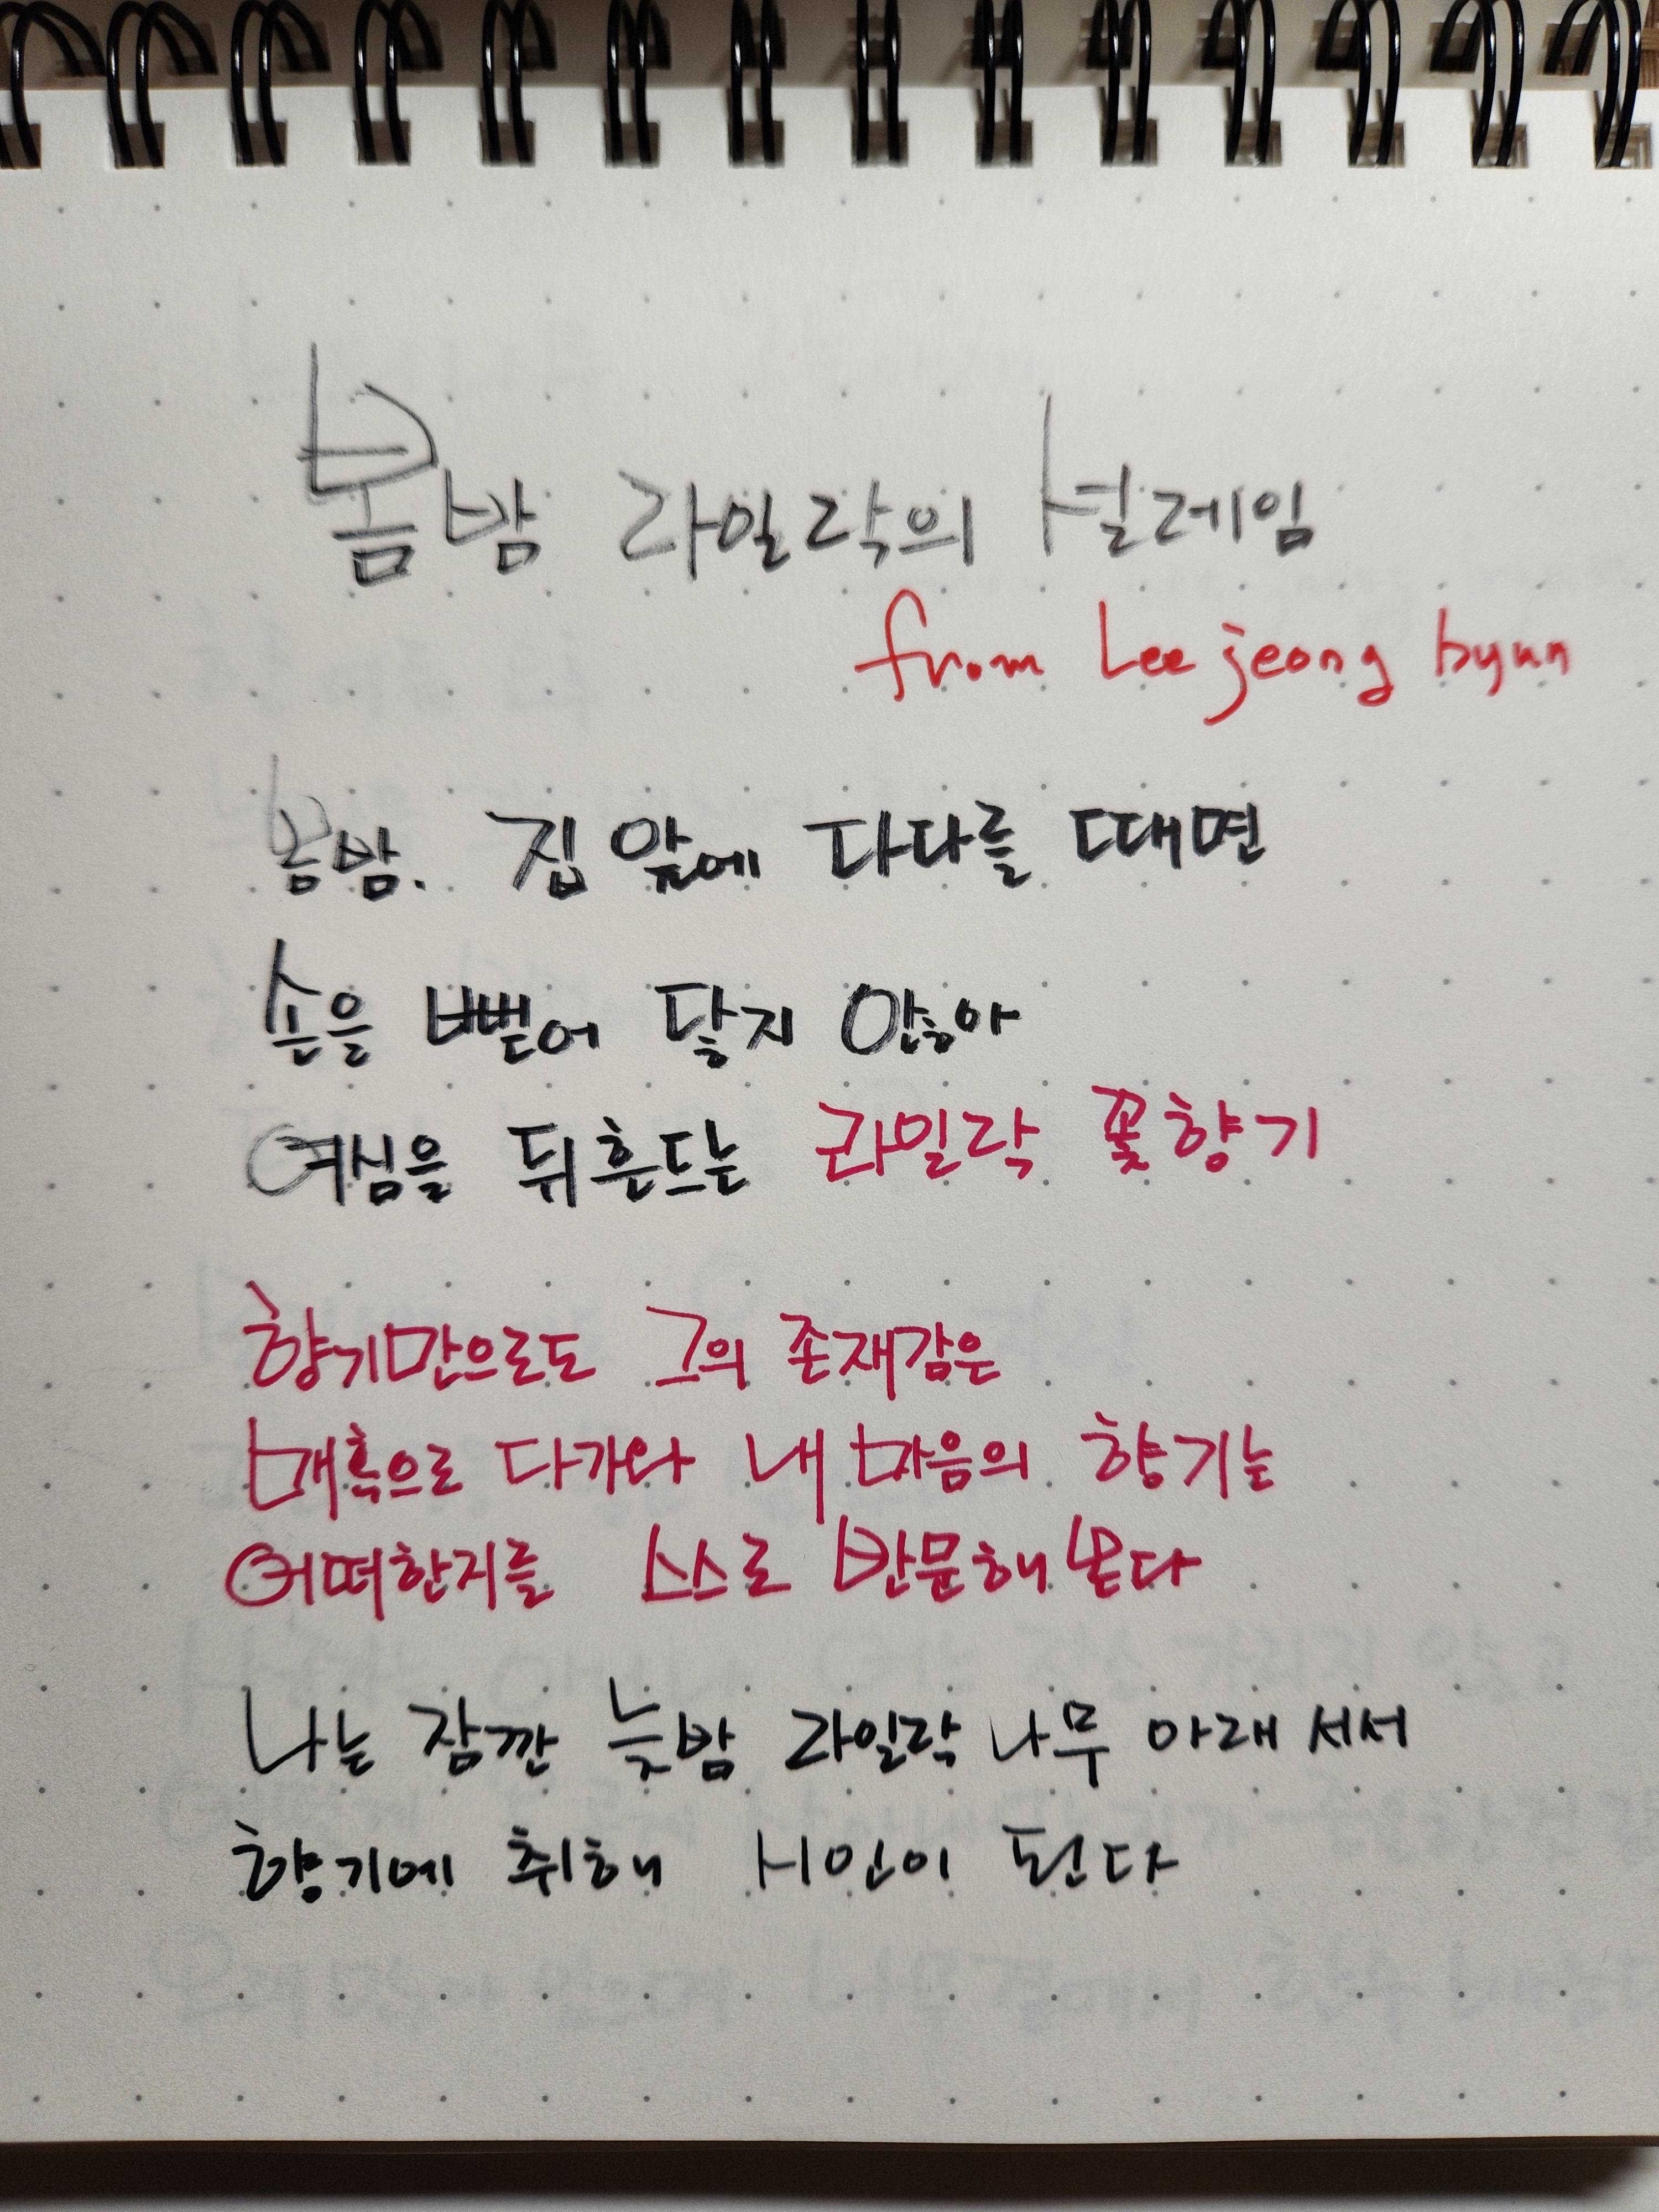 봄밤 라일락의 설레임
from Lee jeong hyun
봄밤. 집 앞에 다다를 때면
손을 뻗어 닿지 않아
여심을 뒤흔드는 라일락 꽃향기
향기만으로도 그의 존재감은
매혹으로 다가와 내 마음의 향기는
어떠한지를 스스로 반문해 본다
나는 잠깐 늦밤 라일락 나무 아래 서서
향기에 취해 시인이 된다